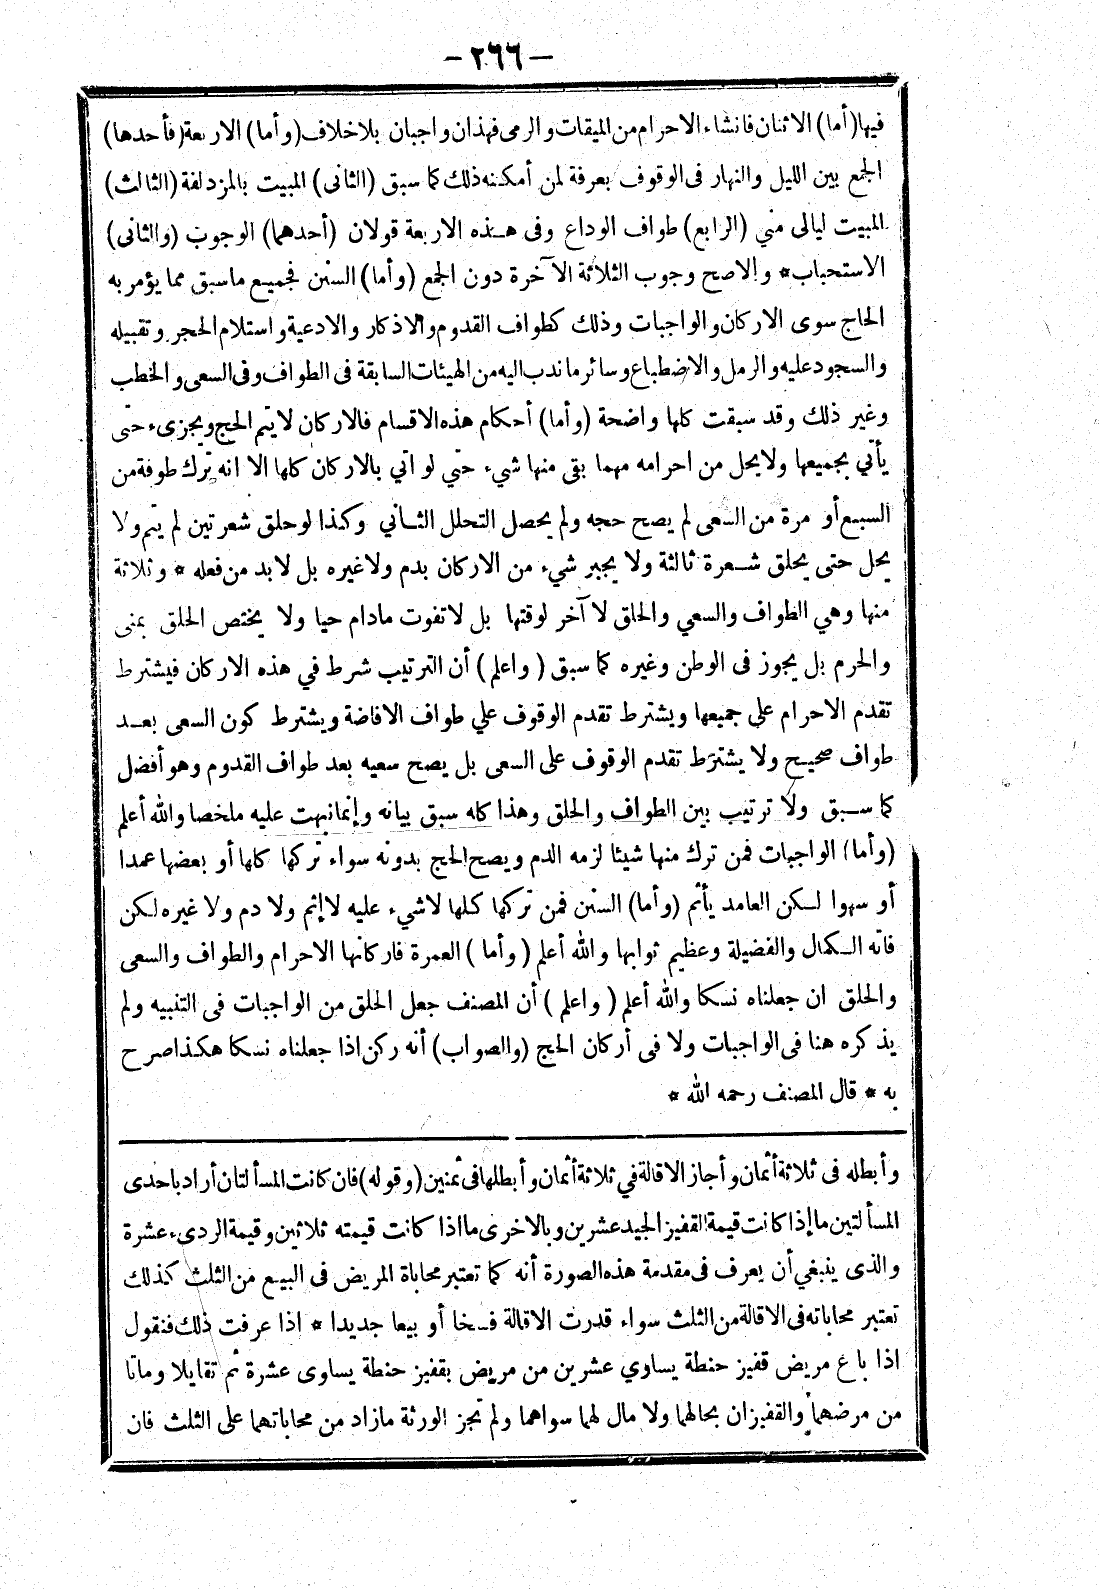 — ٢٦٦ —
فيها (أما) الاثنان فانشاء الاحرام من الميقات والرمى فهذان واجبان بلاخلاف (وأما) الاربعة (فأحدها)
الجمع بين الليل والنهار فى الوقوف بعرفة لمن أمكنه ذلك كما سبق (الثانى) المبيت بالمزدلفة (الثالث)
المبيت ليالى منى (الرابع) طواف الوداع وفى هـذه الاربعة قولان (أحدهما) الوجوب (والثانى)
الاستحباب* والاصح وجوب الثلاثة الآخرة دون الجمع (وأما) السنن فجميع ماسبق مما يؤمر به
الحاج سوى الاركان والواجبات وذلك كطواف القدوم والاذكار والادعية واستلام الحجر وتقبيله
والسجود عليه والرمل والاضطباع وسائر ماندب اليه من الهيئات السابقة فى الطواف وفى السعى والخطب
وغير ذلك وقد سبقت كلها واضحة (وأما) أحكام هذه الاقسام فالاركان لايتم الحج ويجزىء حتى
يأتي بجميعها ولايحل من احرامه مهما بقى منها شيء حتي لو اتي بالاركان كلها الا انه ترك طوفة من
السبع أو مرة من السعى لم يصح حجه ولم يحصل التحلل الثـاني وكذا لوحلق شعرتين لم يتم ولا
يحل حتى يحلق شـعرة ثالثة ولا يجبر شيء من الاركان بدم ولاغيره بل لابد من فعله * وثلاثة
منها وهي الطواف والسعي والحلق لا آخر لوقتها بل لاتفوت مادام حيا ولا يختص الحلق بمنى
والحرم بل يجوز فى الوطن وغيره كما سبق (واعلم) أن الترتيب شرط في هذه الاركان فيشترط
تقدم الاحرام على جميعها ويشترط تقدم الوقوف علي طواف الافاضة ويشترط كون السعى بعـد
طواف صحيح ولا يشترط تقدم الوقوف على السعى بل يصح سعيه بعد طواف القدوم وهو أفضل
كما سـبق ولا ترتيب بين الطواف والحلق وهذا كله سبق بيانه وإنما نبهت عليه ملخصا والله أعلم
(وأما) الواجبات فمن ترك منها شيئا لزمه الدم ويصح الحج بدونه سواء تركها كلها أو بعضها عمدا
أو سهوا لـكن العامد يأثم (وأما) السنن فمن تركها كلها لاشيء عليه لاإثم ولا دم ولا غيره لكن
فاته الـكمال والفضيلة وعظيم ثوابها والله أعلم (وأما) العمرة فاركانها الاحرام والطواف والسعى
والحلق ان جعلناه نسكا والله أعلم (واعلم) أن المصنف جعل الحلق من الواجبات فى التنبيه ولم
يذكره هنا فى الواجبات ولا فى أركان الحج (والصواب) أنه ركن اذا جعلناه نسكا هكذا صرح
به * قال المصنف رحمه الله *
وأبطله فى ثلاثة أثمان وأجاز الاقالة في ثلاثة أثمان وأبطلها فى ثمنين (وقوله) فان كانت المسألتان أراد باحدى
المسألتين ما إذا كانت قيمة القفيز الجيد عشرين وبالاخرى ما اذا كانت قيمته ثلاثين وقيمة الردىء عشرة
والذى ينبغي أن يعرف فى مقدمة هذه الصورة أنه كما تعتبر محاباة المريض فى البيع من الثلث كذلك
تعتبر محاباته فى الاقالة من الثلث سواء قدرت الاقالة فسخا أو بيعا جديدا * اذا عرفت ذلك فنقول
اذا باع مريض قفيز حنطة يساوي عشرين من مريض بقفيز حنطة يساوى عشرة ثم تقايلا وماتا
من مرضهما والقفيزان بحالهما ولا مال لهما سواهما ولم تجز الورثة مازاد من محاباتهما على الثلث فان